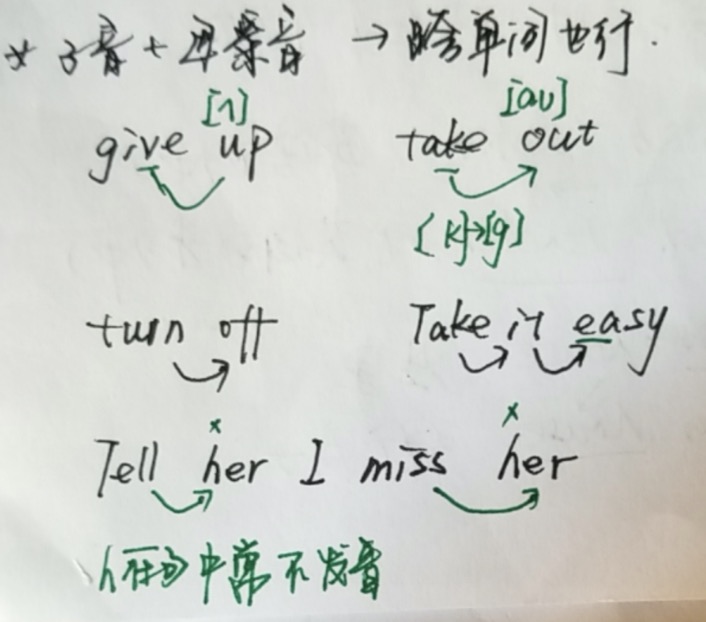 * 子音 + 母音 → 跨单词也行.
[ʌ] [aʊ]
give up take out
[k]→[g]
turn off Take it easy
× ×
Tell her I miss her
h在句中常不发音